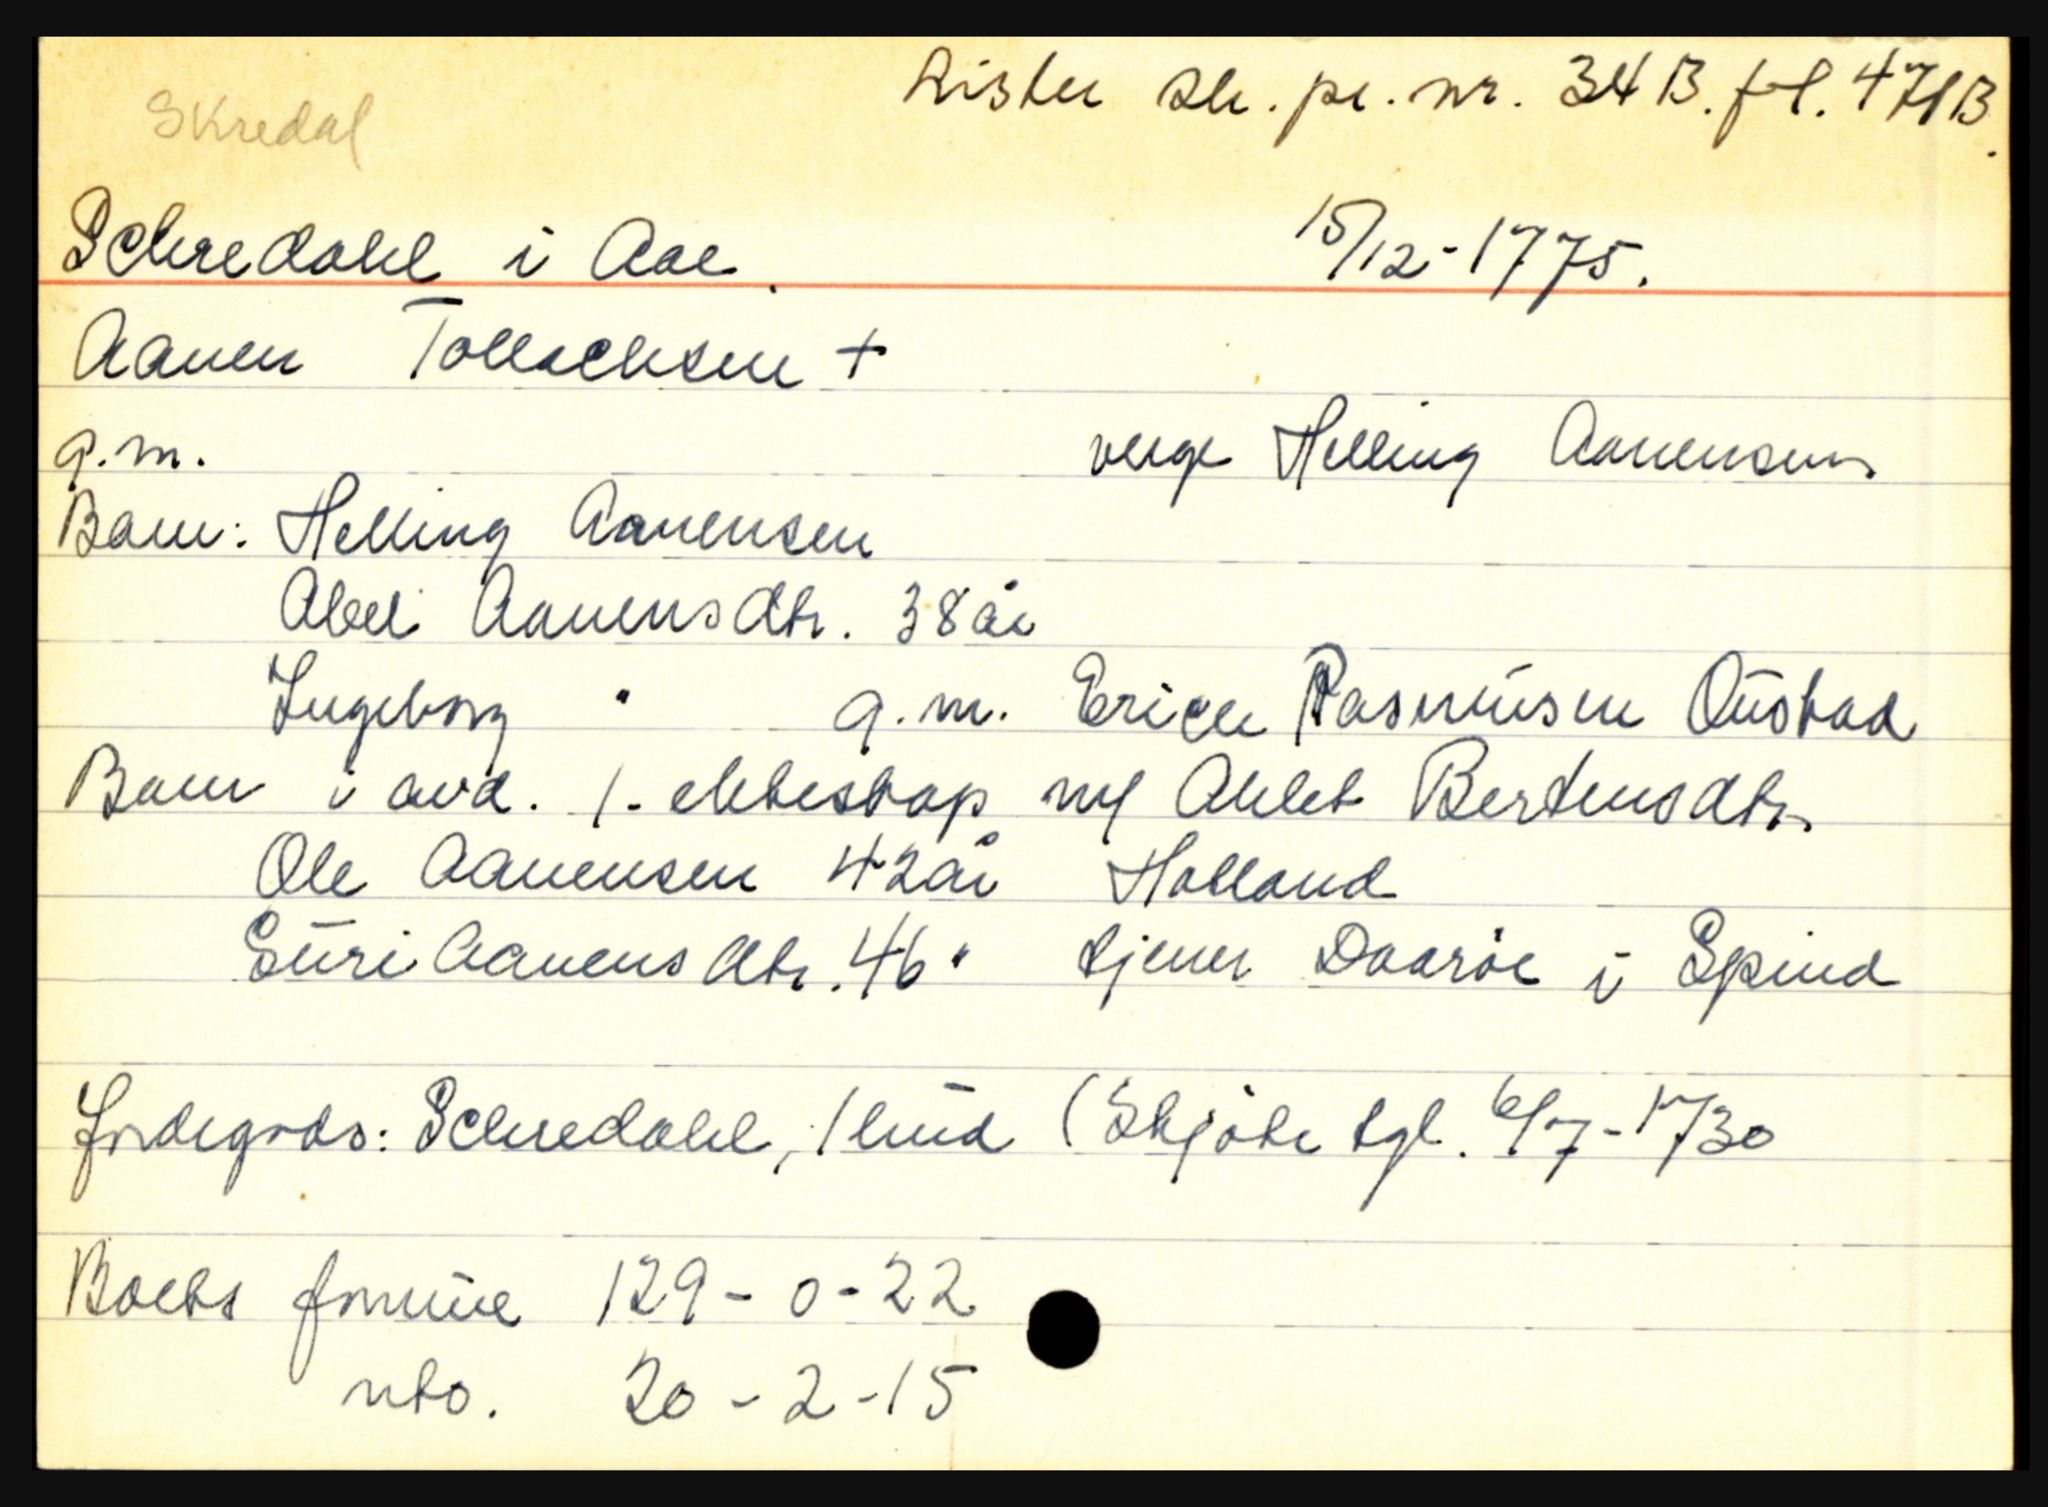 Lister sk. pr. nr. 34 B. fol. 471B.
Skredal
Schredahl i Aae. 15/12-1775.
Aanen Tollachsen +
g.m. verge Helling Aanensen
Barn: Helling Aanensen
Abel Aanensdtr. 38 år
Ingeborg " g.m. Erich Rasmüsen Oüstad
Barn i avd. 1. ekteskap m/ Ahlet Bertensdtr.
Ole Aanensen 42 år Holland
Siiri Aanensdtr. 46 " tjener Daaröe i Spind
Jordegods: Schredahl, 1 hüd (Skjöte tgl. 6/7-1730
Boets formüe 129-0-22
nto. 20-2-15